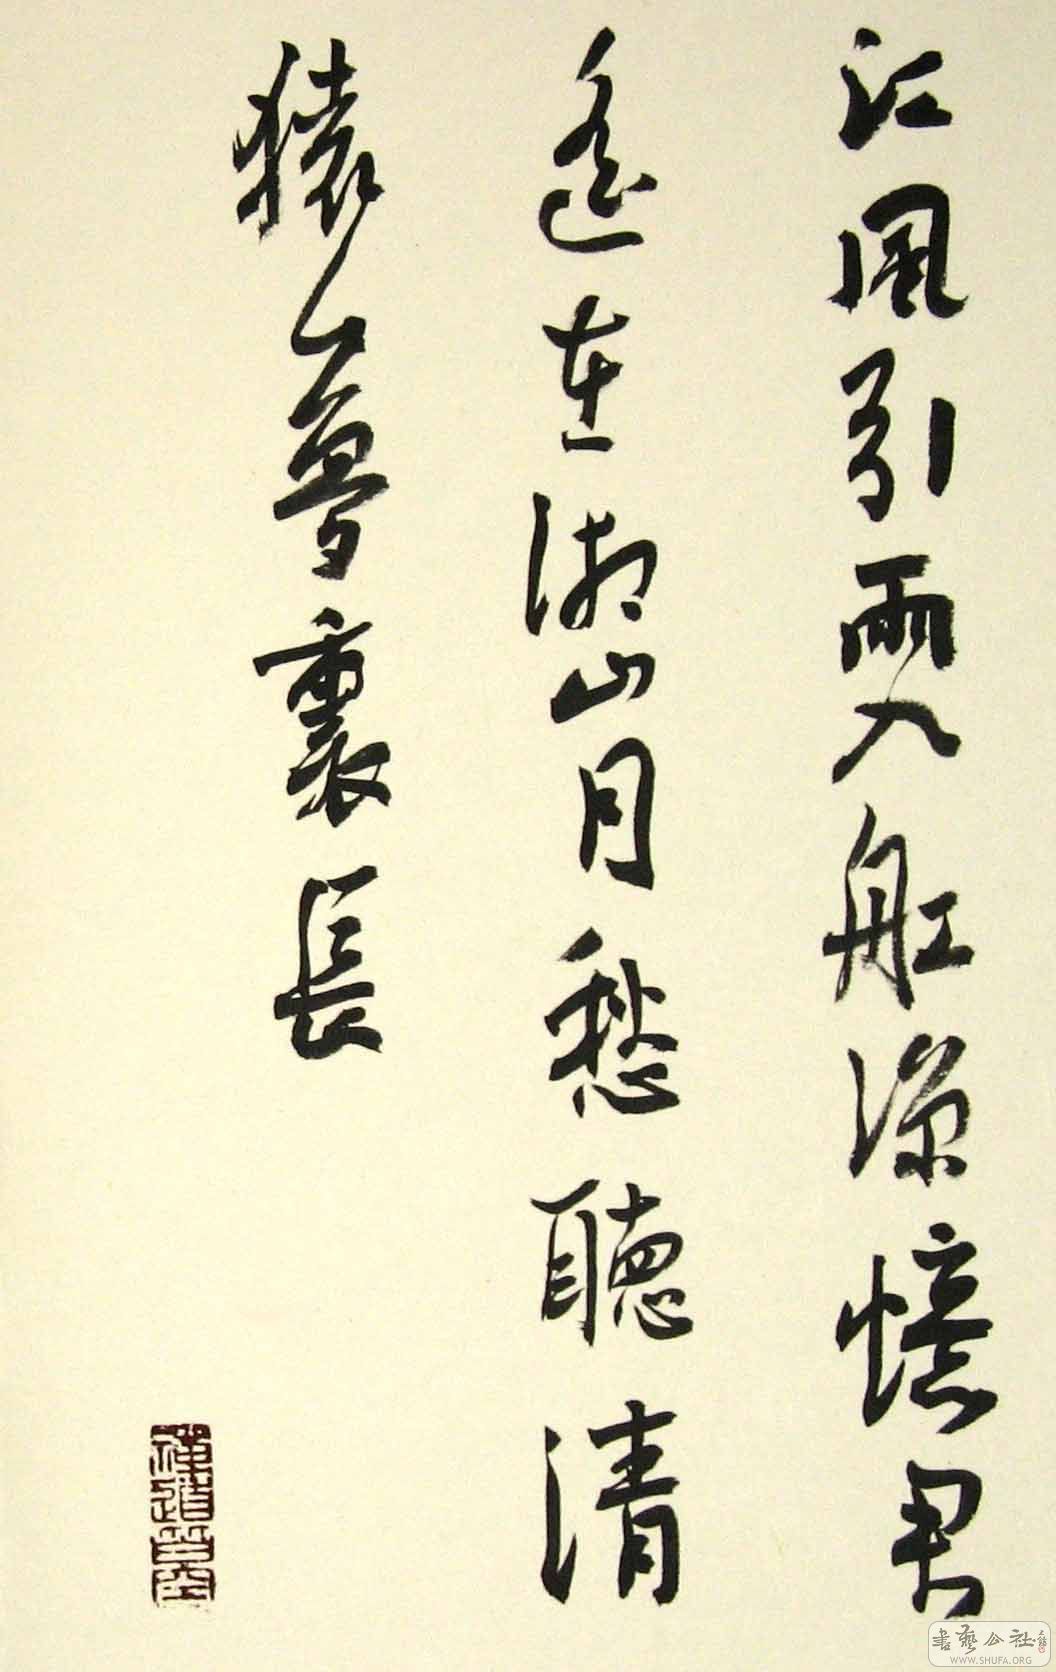 江風引雨入舡涼憶君
遙在湘山月愁聽清
猿夢裏長
書藝公社
WWW.SHUFA.ORG